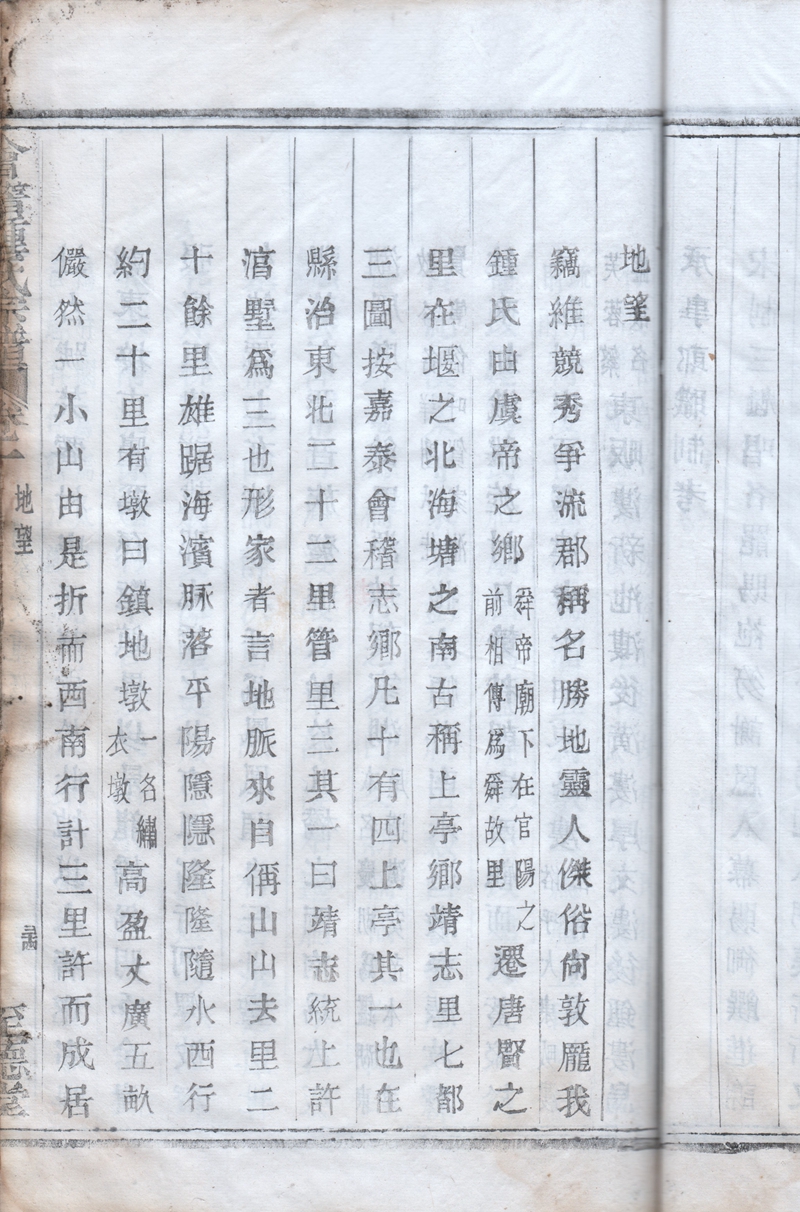 地望
竊維競秀爭流郡稱名勝地靈人傑俗尙敦龐我
鍾氏由虞帝之鄉舜帝廟下在官陽之前相傳爲舜故里遷唐賢之
里在堰之北海塘之南古稱上亭鄉靖志里七都
三圖按嘉泰會稽志鄉凡十有四上亭其一也在
縣治東北三十二里管里三其一曰靖志統上許
湻墅爲三也形家者言地脈來自偁山山去里二
十餘里雄踞海濱脉落平陽隱隱隆隆隨水西行
約二十里有墩曰鎮地墩一名繡衣墩高盈丈廣五畝
儼然一小山由是折而西南行計三里許而成居
地望